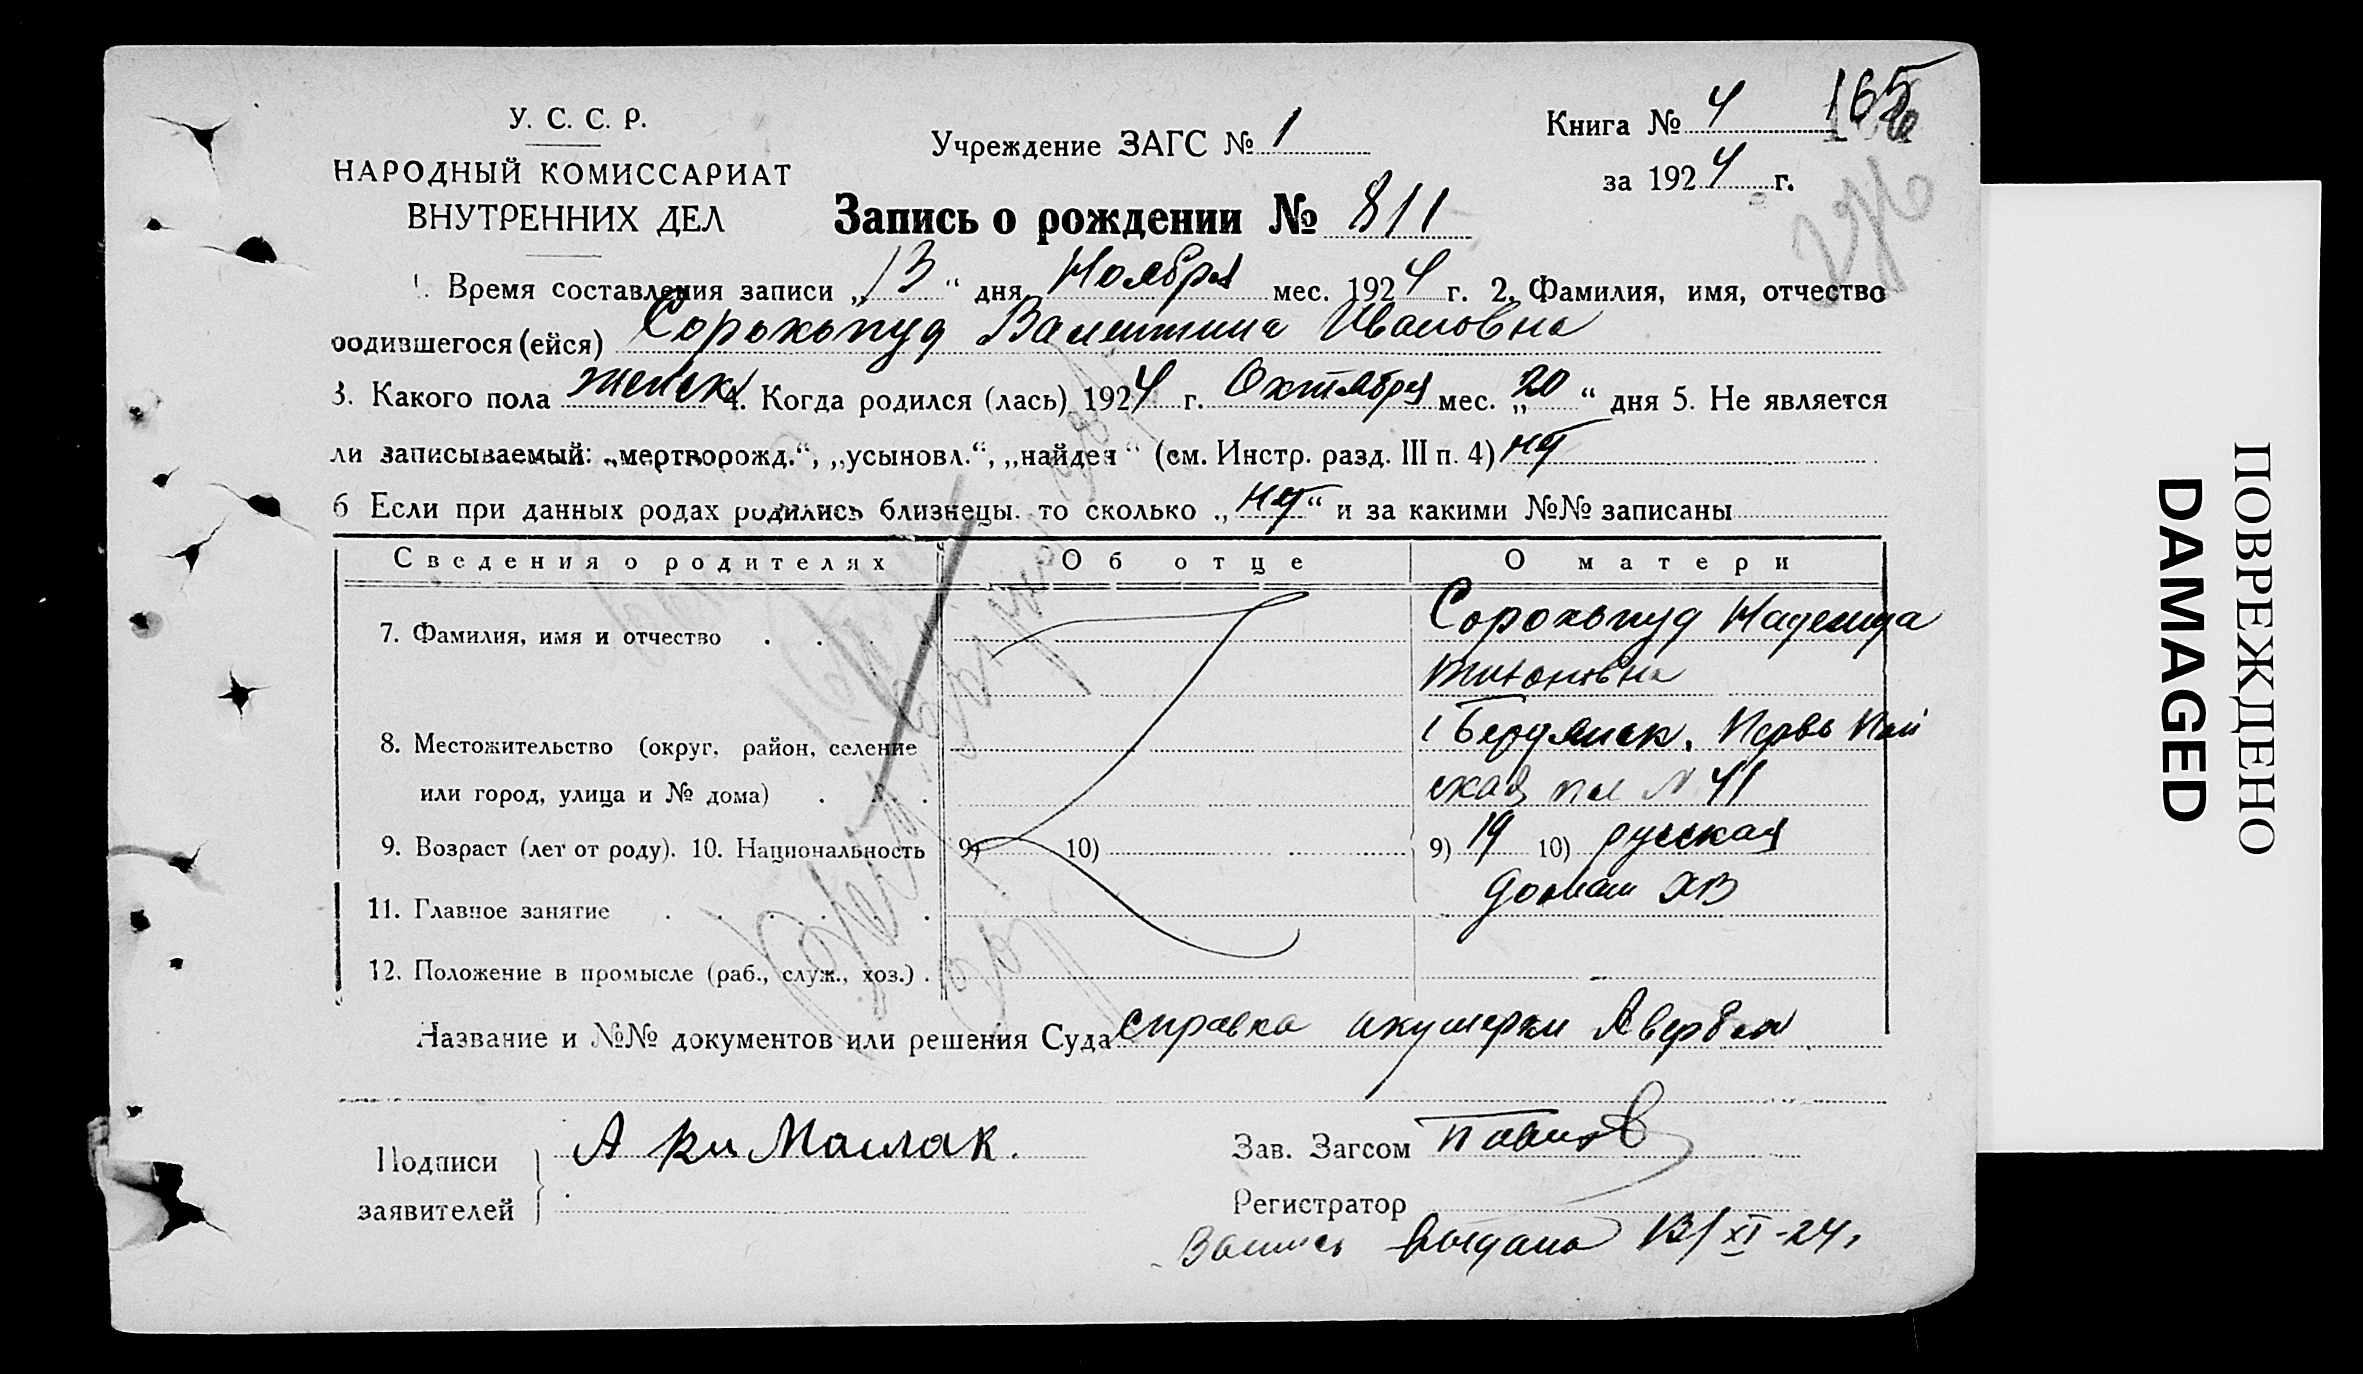 У. С. С. Р.
НАРОДНЫЙ КОМИССАРИАТ
ВНУТРЕННИХ ДЕЛ
Учреждение ЗАГС № 1
Книга № 4 165
за 1924 г.
Запись о рождении № 811
1. Время составления записи „13“ дня Ноября мес. 1924 г. 2. Фамилия, имя, отчество
родившегося (ейся) Сорокопуд Валентина Ивановна
3. Какого пола женск 4. Когда родился (лась) 1924 г. Октября мес. „20“ дня 5. Не является
ли записываемый: „мертворожд.“, „усыновл.“, „найден“ (см. Инстр. разд. III п. 4) нет
6 Если при данных родах родились близнецы. то сколько „нет“ и за какими №№ записаны
Сведения о родителях Об отце О матери
7. Фамилия, имя и отчество Сорокопуд Надежда
Тихоновна
8. Местожительство (округ, район, селение г Бердянск, Перво Май
или город, улица и № дома) ская пл № 41
9. Возраст (лет от роду). 10. Национальность 9) 10) 9) 19 10) русская
11. Главное занятие домаш хв
12. Положение в промысле (раб., служ., хоз.)
Название и №№ документов или решения Суда справка акушерки
Подписи
заявителей
Зав. Загсом
Регистратор
13/XI-24,
ПОВРЕЖДЕНО
DAMAGED